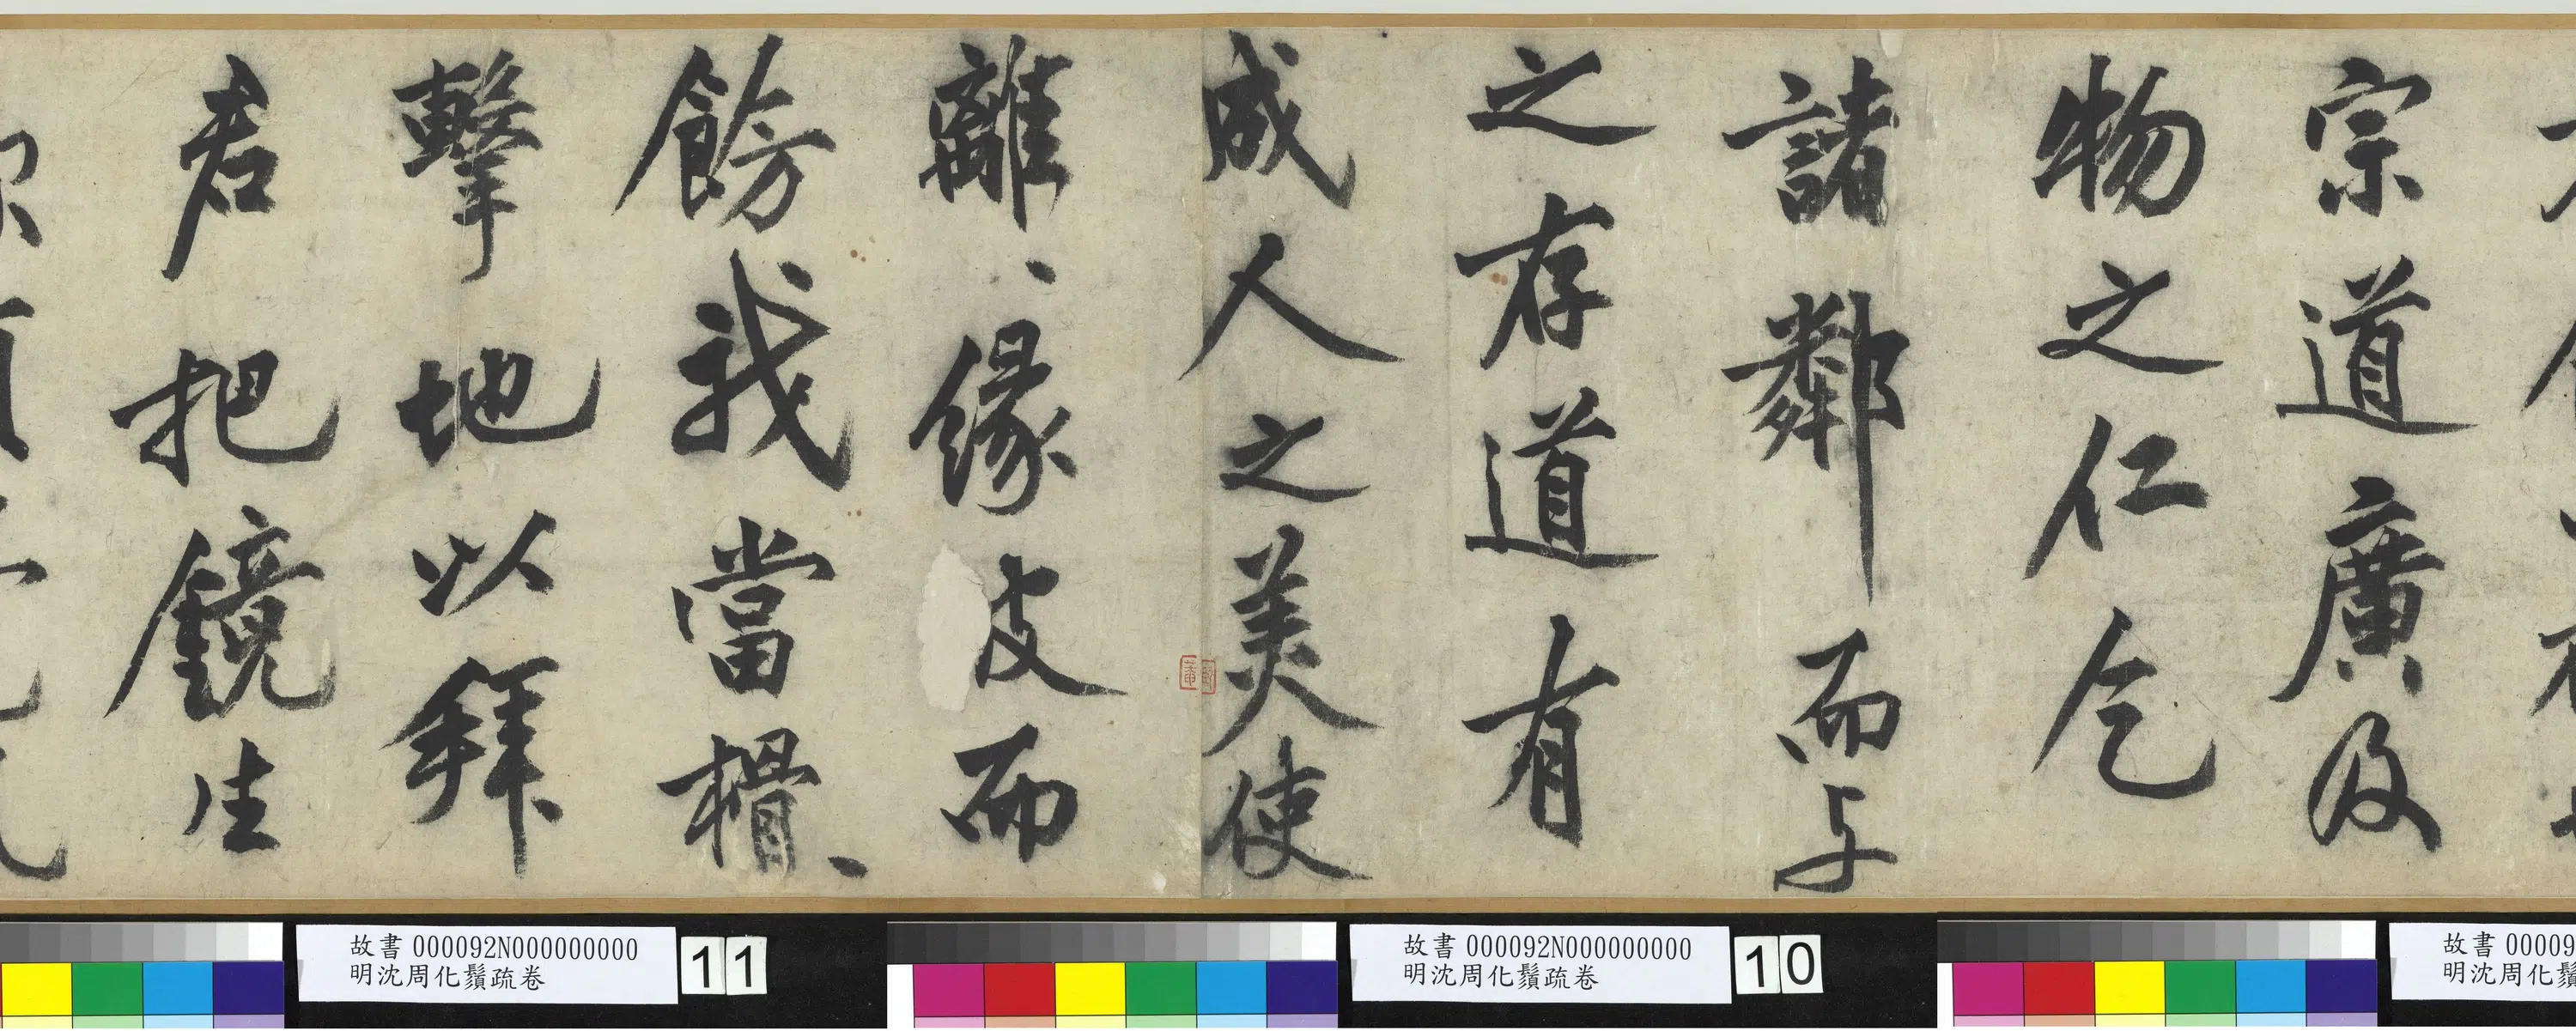 宗道廣及
物之仁乞
諸鄰而与
之存道有
成人之美使
離、緣皮而
餝我當榾、
擊地以拜
君把鏡生
故書 000092N000000000
明沈周化鬚疏卷
11
故書 000092N000000000
明沈周化鬚疏卷
10
故書 00009
明沈周化